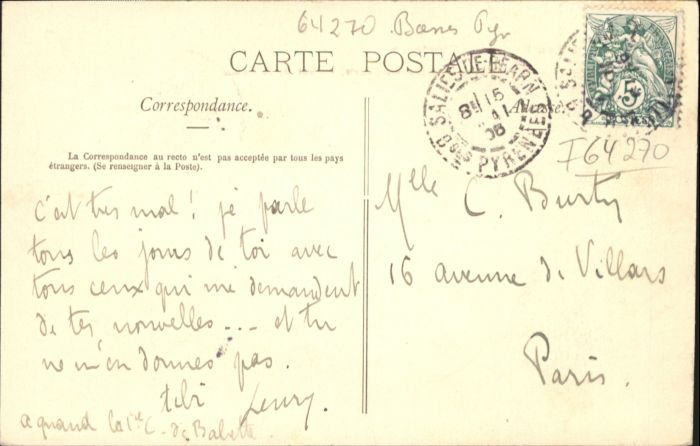 64270 Basses Pyr
CARTE POSTALE
Correspondance.
Adresse.
La Correspondance au recto n'est pas acceptée par tous les pays
étrangers. (Se renseigner à la Poste).
SALIES-DE-BÉARN
8H 15
06
Bses PYRÉNÉES
5c
I64270
c'est très mal! je parle
tous les jours de toi avec
tous ceux qui me demandent
de tes nouvelles... et tu
ne m'en donnes pas.
tibi
a quand la 1re C. de Babette
Mlle C. Burty
16 avenue de Villars
Paris.